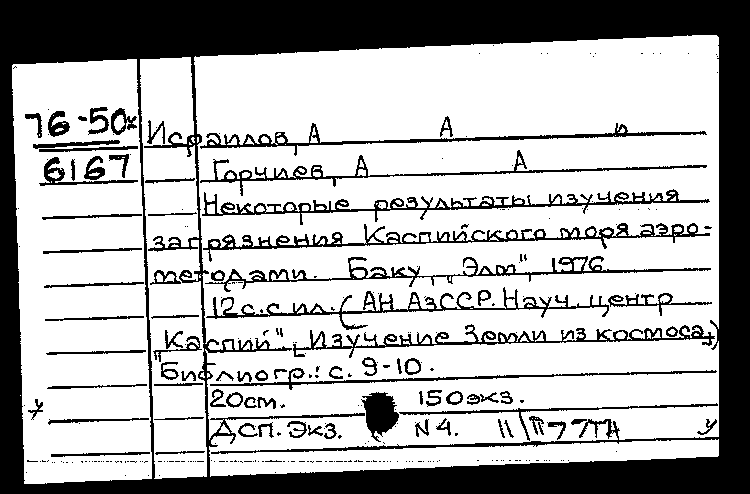 76-50х Исраилов, А А и
6167 Горчиев, А А
Некоторые результаты изучения
загрязнения Каспийского моря аэро-
методами. Баку, "Элм", 1976
12 с. с ил. (АН АзССР. Науч. центр
"Каспий". Изучение Земли из космоса)
Библиогр.: с. 9-10.
20 см. 150 экз.
ДСП. Экз. N 4.